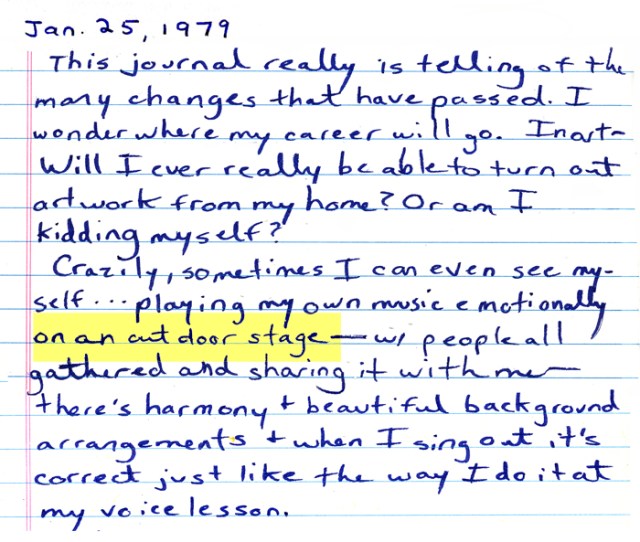 Jan. 25, 1979
This journal really is telling of the
many changes that have passed. I
wonder where my career will go. In art~
Will I ever really be able to turn out
artwork from my home? Or am I
kidding myself?
Crazily, sometimes I can even see my-
self... playing my own music emotionally
on an out door stage — w/ people all
gathered and sharing it with me —
there's harmony + beautiful background
arrangements + when I sing out it's
correct just like the way I do it at
my voice lesson.